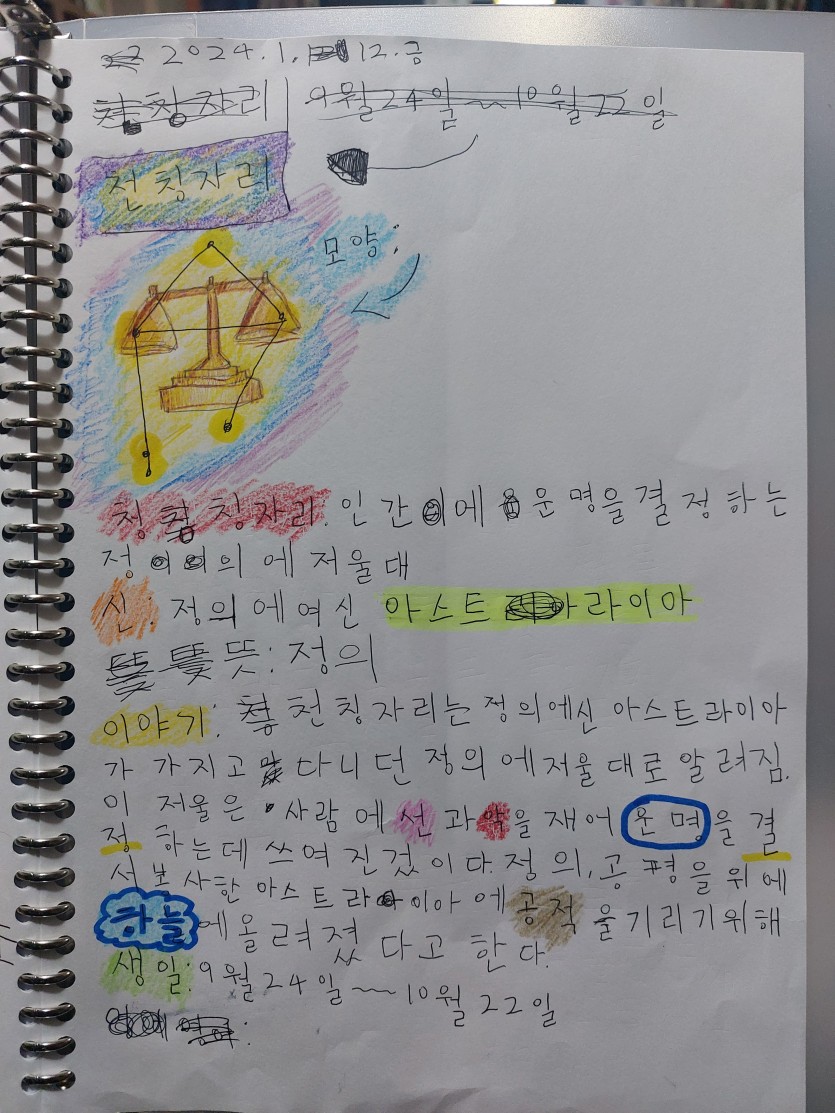 2024.1.12.금
9월24일~10월22일
천칭자리
모양:
칭자리: 인간에 운명을결정하는
정의에 저울대
신: 정의에여신 아스트라이아
뜻: 정의
이야기: 천칭자리는 정의에신 아스트라이아
가 가지고 다니던 정의에저울대로 알려짐.
이 저울은 사람에 선과 악을 재어 운명을 결
정 하는데 쓰여진겄이다. 정의, 공평을위에
서 봉사한 아스트라이아에 공적을기리기위해
하늘에올려졌다고 한다.
생일: 9월24일~10월22일